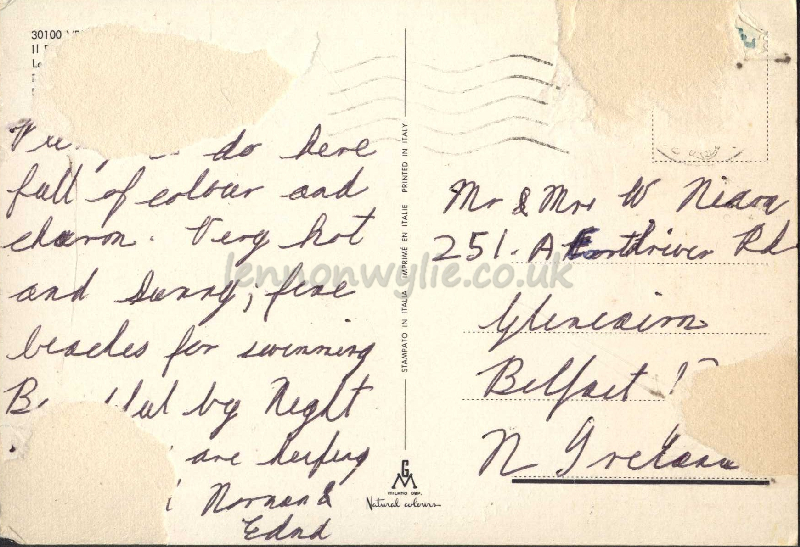 30100
Il
do here
full of colour and
charm. Very hot
and sunny, fine
beaches for swimming
by Night
are
Norman &
Edna
STAMPATO IN ITALIA IMPRIMÉ EN ITALIE PRINTED IN ITALY
GM
MILANO
Natural colours
Mr & Mrs W
251. A Rd
Glencairn
Belfast
N Ireland
lennonwylie.co.uk